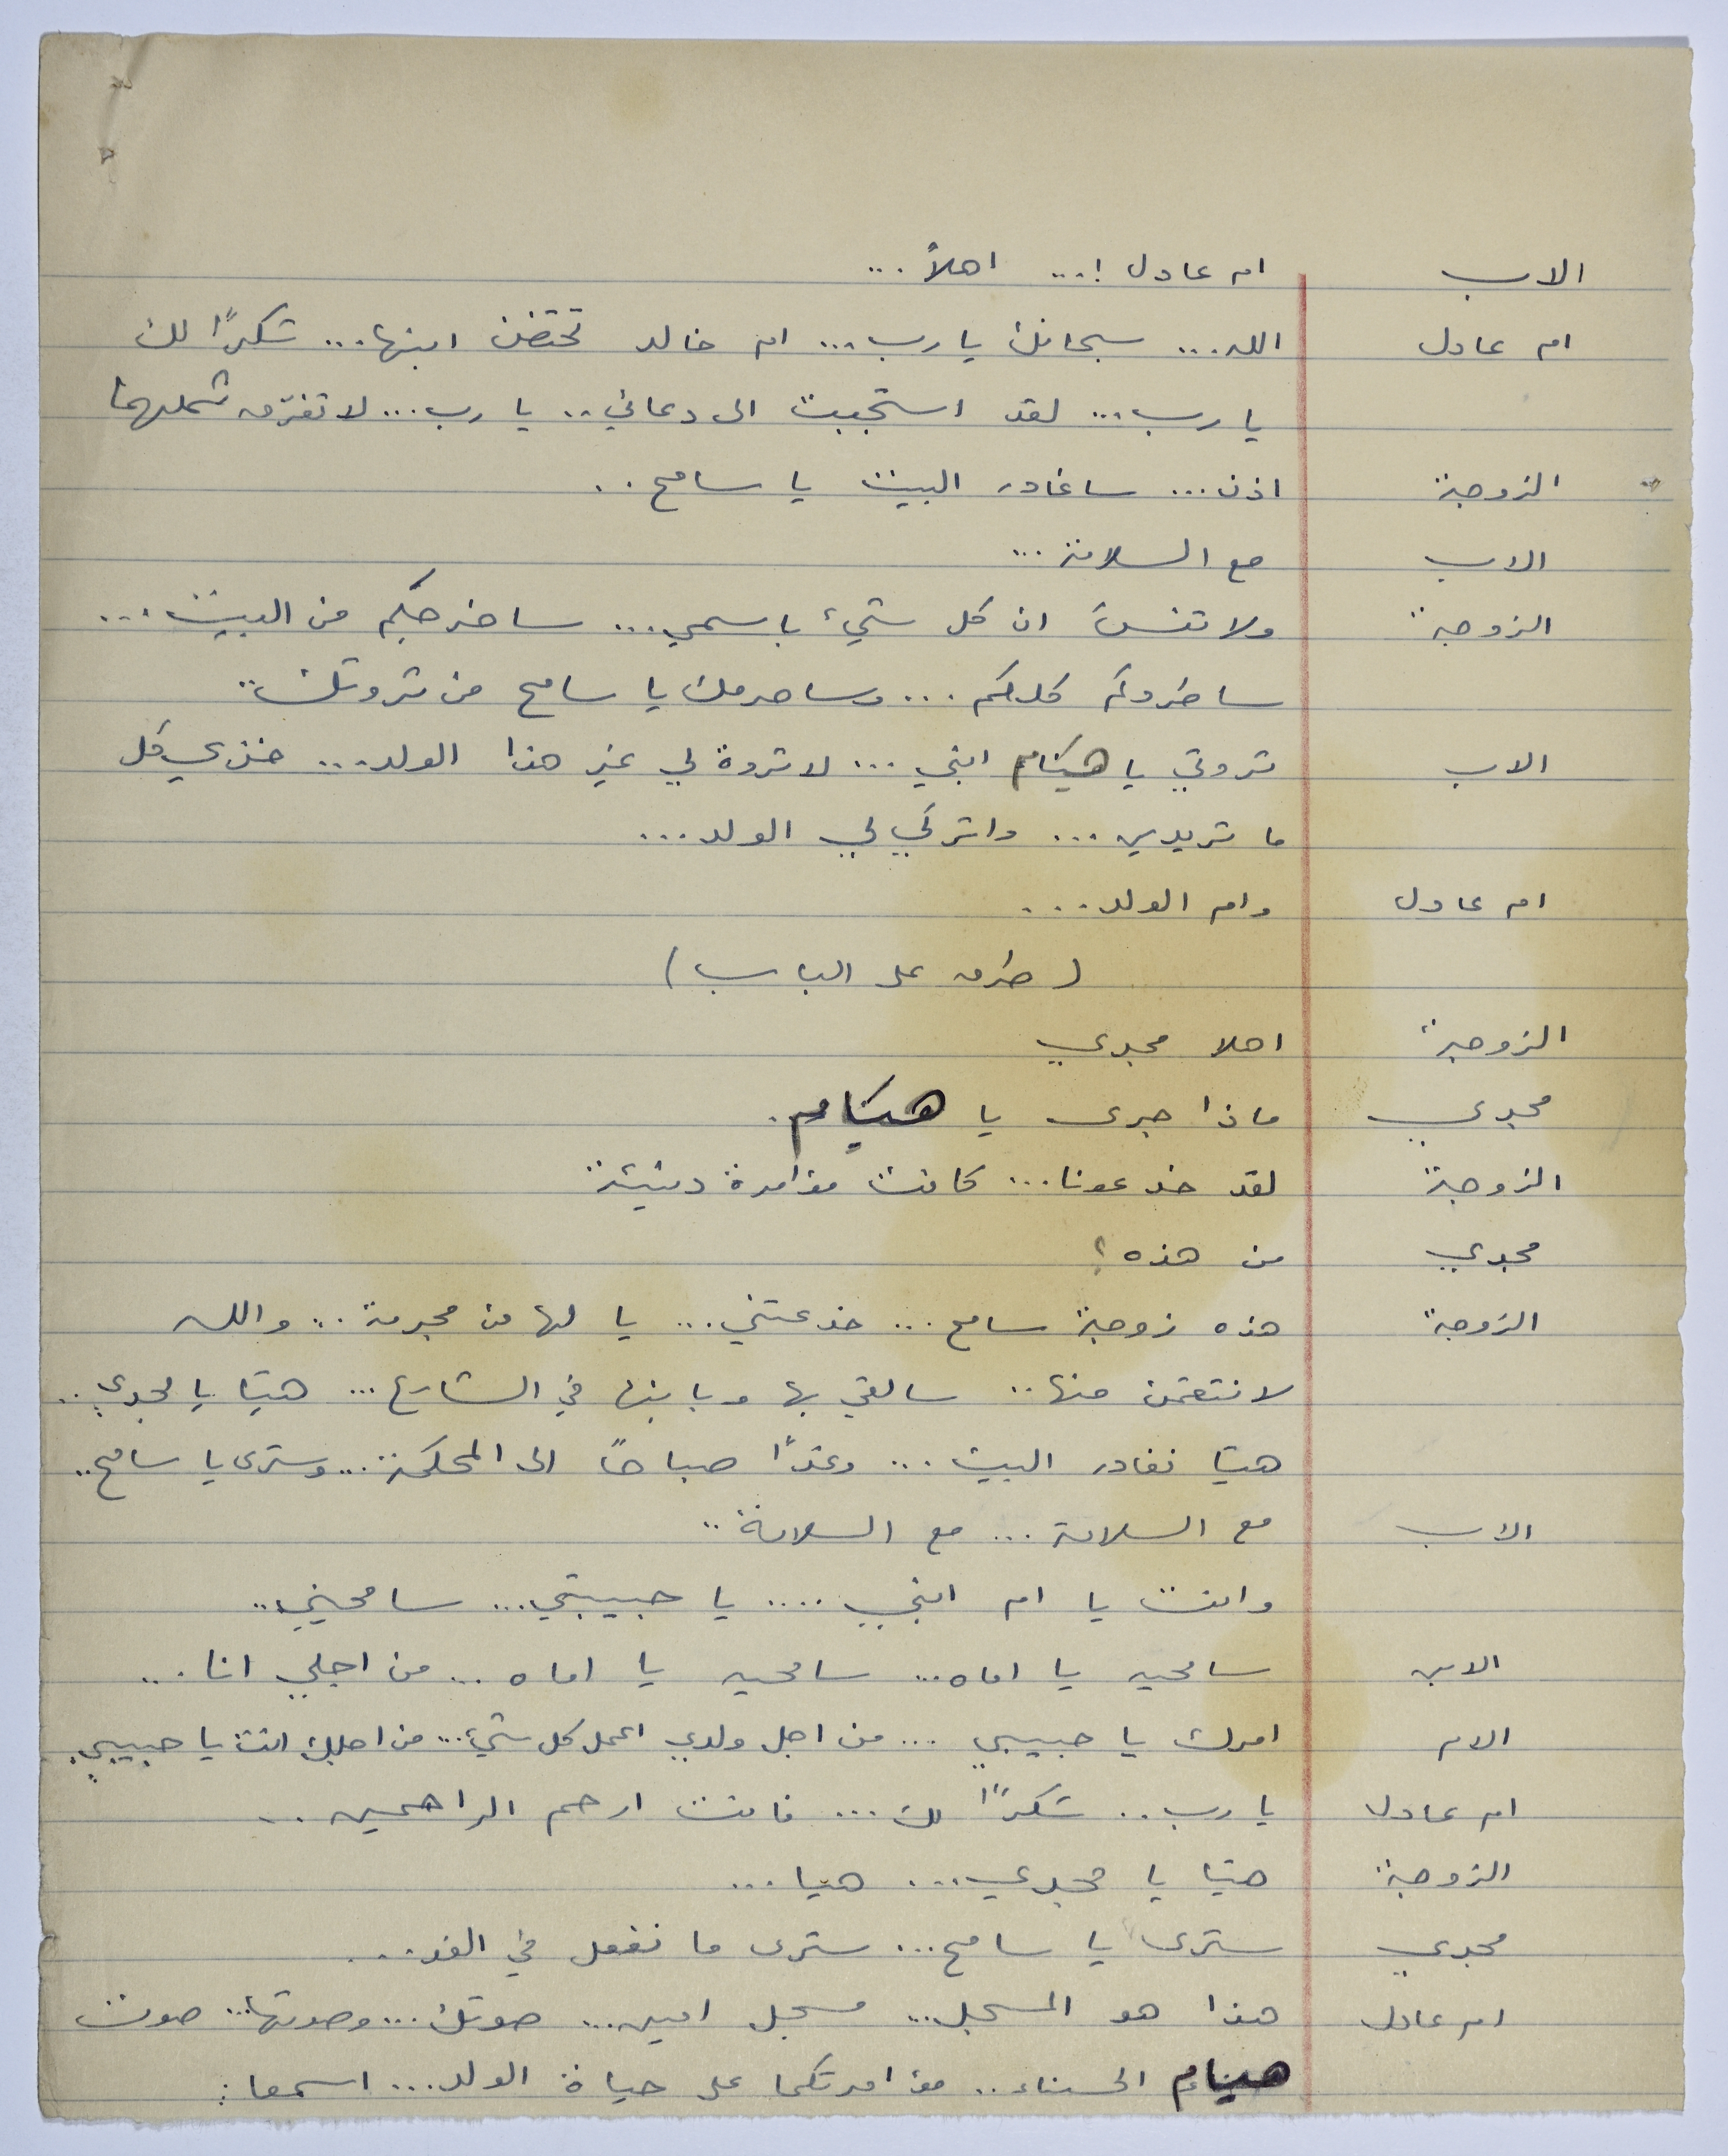 الاب ام عادل !... اهلاً...
ام عادل الله... سبحانك يا رب... ام خالد تحتضن ابنها... شكرًا لك
يا رب... لقد استجبت الى دعائي.. يا رب... لا تفرّق شملهما
الزوجة اذن... ساغادر البيت يا سامح..
الاب مع السلامة...
الزوجة ولا تنسَ ان كل شيء باسمي... ساخرجكم من البيت...
ساطردكم كلكم... وساحرمك يا سامح من ثروتك..
الاب ثروتي يا هيام ابني... لا ثروة لي غير هذا الولد... خذي كل
ما تريدين... واتركي لي الولد...
ام عادل وام الولد...
(طرق على الباب)
الزوجة اهلا مجدي
مجدي ماذا جرى يا هيام.
الزوجة لقد خدعونا... كانت مؤامرة دنيئة
مجدي من هذه؟
الزوجة هذه زوجة سامح... خدعتني... يا لها من مجرمة... والله
لانتقمن منها.. سالقي بها وبابنها في الشارع... هيّا يا مجدي..
هيّا نغادر البيت... وغدًا صباحًا الى المحكمة... وسترى يا سامح..
الاب مع السلامة... مع السلامة..
وانت يا ام ابني.... يا حبيبتي... سامحيني..
الابن سامحيه يا اماه... سامحيه يا اماه... من اجلي انا...
الام امرك يا حبيبي... من اجل ولدي اعمل كل شيء... من اجلك انت يا حبيبي.
ام عادل يا رب.. شكرًا لك... فانت ارحم الراحمين..
الزوجة هيّا يا مجدي... هيا...
مجدي سترى يا سامح... سترى ما نفعل في الغد...
ام عادل هذا هو المسجل... مسجل امين... صوتك... وصوتها... صوت
هيام الحسناء.. مؤامرتكما على حياة الولد... اسمعا: